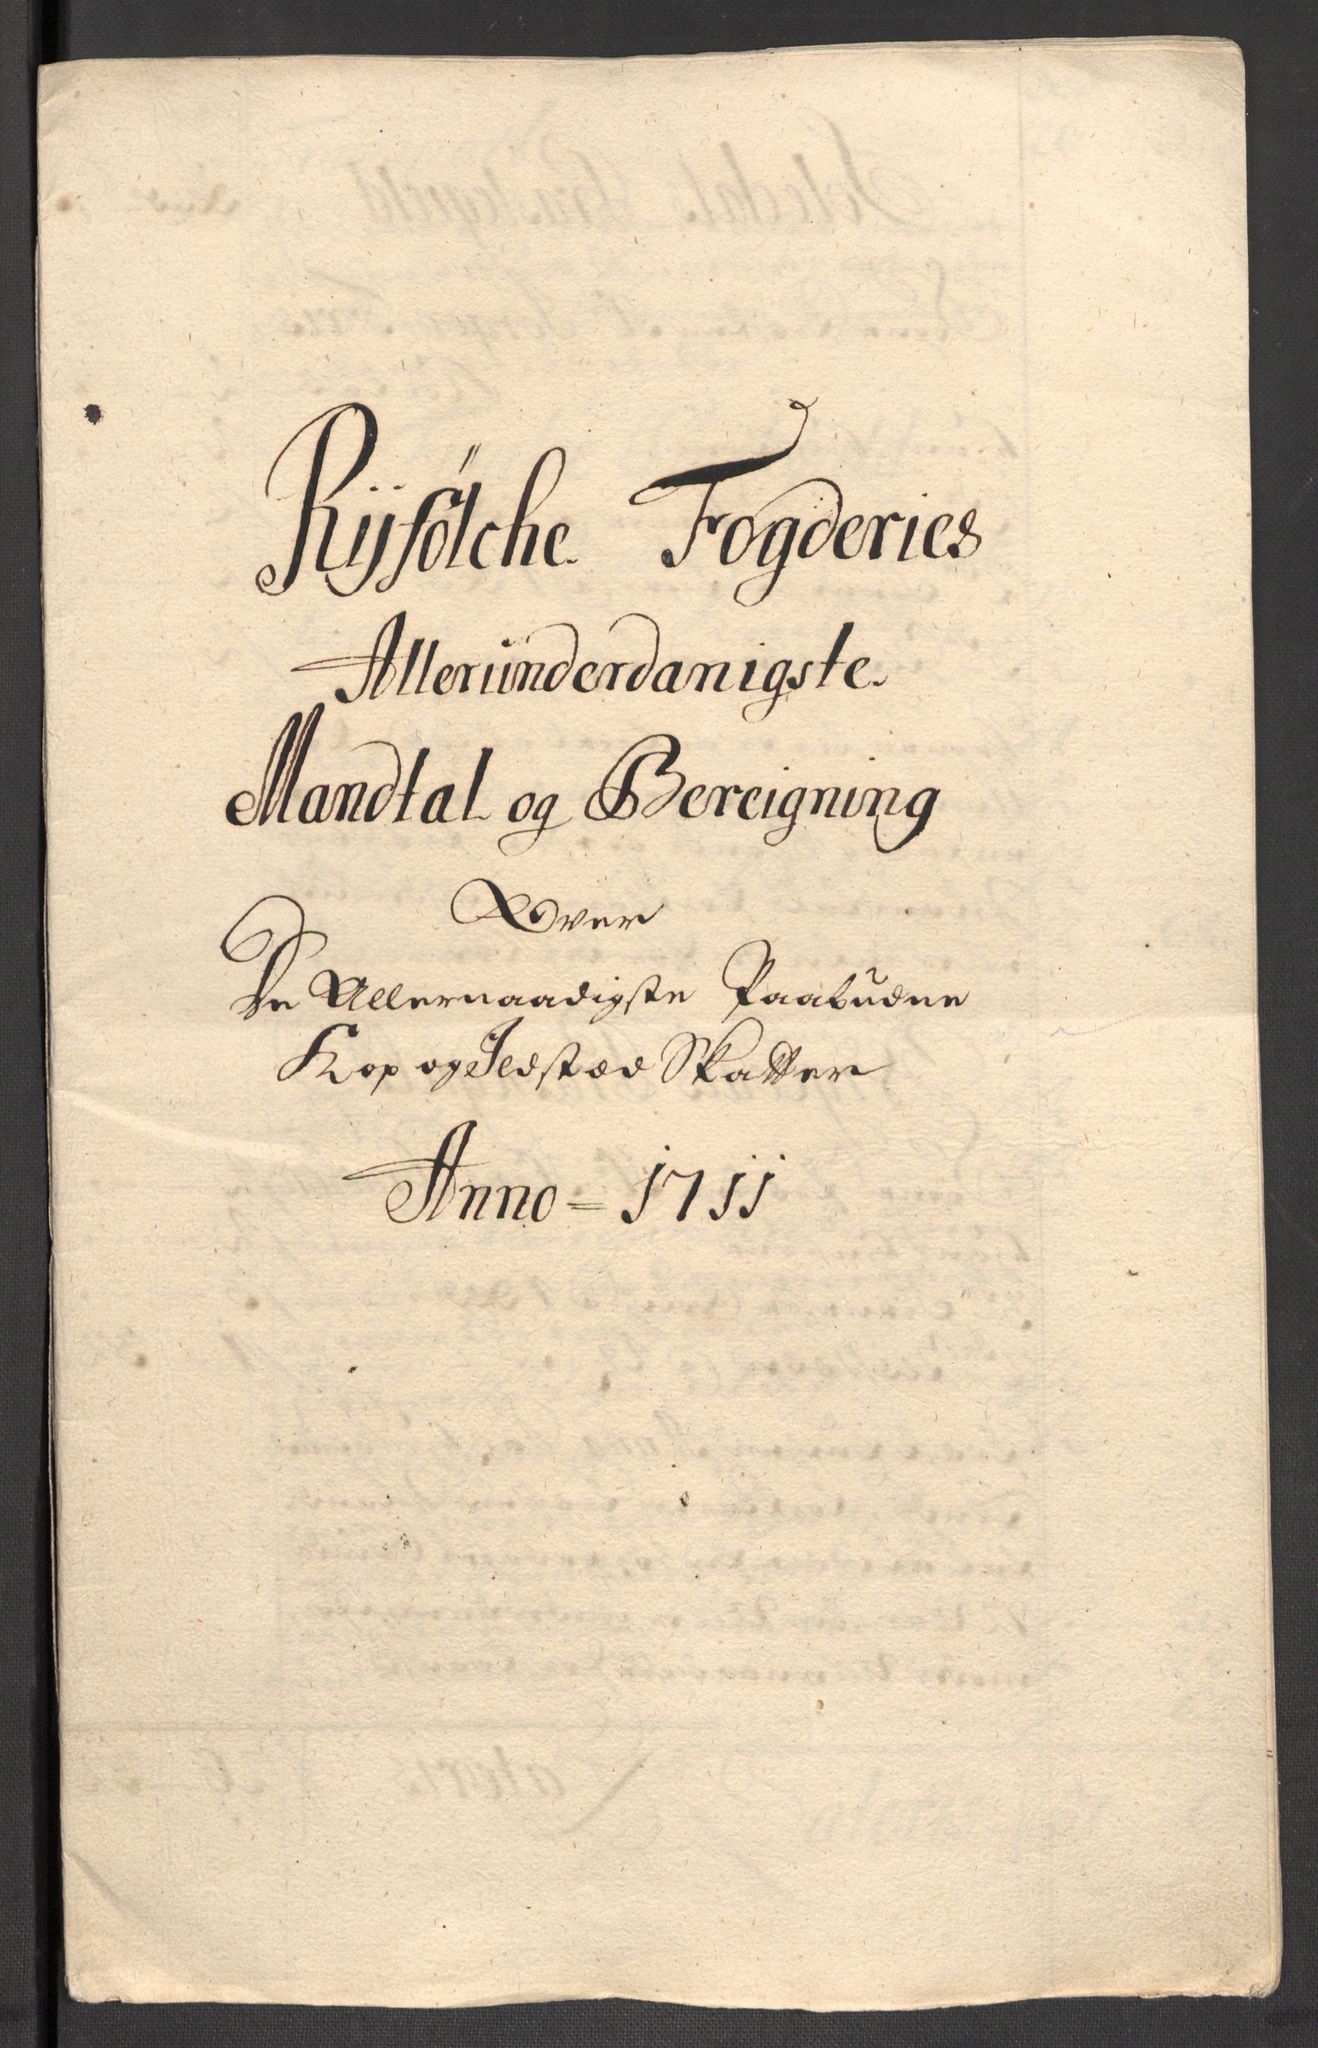 Rijfólche Fogderies
Allerunderdanigste
Mandtal og Bereigning
Over
De Allernaadigste Paabudne
Kop og Ildstæd Skatter
Anno = 1711